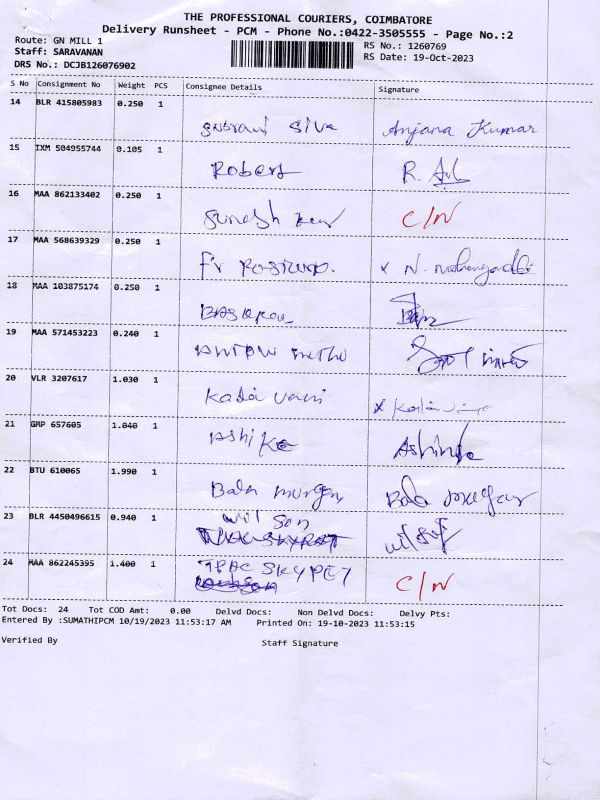 THE PROFESSIONAL COURIERS, COIMBATORE
Delivery Runsheet - PCM - Phone No.:0422-3505555 - Page No.:2
Route: GN MILL 1
RS No.: 1260769
Staff: SARAVANAN
RS Date: 19-Oct-2023
DRS No.: DCJB126076902
S No Consignment No Weight PCS Consignee Details Signature
14 BLR 415805983 0.250 1
Siva Anjana Kumar
15 IXM 504955744 0.105 1
Robert R.
16 MAA 862133402 0.250 1
C/N
17 MAA 568639329 0.250 1
Fr x N.
18 MAA 103875174 0.250 1
19 MAA 571453223 0.240 1
20 VLR 3207617 1.030 1
Kala vani x
21 GMP 657605 1.040 1
Ashika
22 BTU 610065 1.990 1
Bala murgan Bala
23 BLR 4450496615 0.940 1
Wilson
24 MAA 862245395 1.400 1
SKYPET
C/N
Tot Docs: 24 Tot COD Amt: 0.00 Delvd Docs: Non Delvd Docs: Delvy Pts:
Entered By :SUMATHIPCM 10/19/2023 11:53:17 AM Printed On: 19-10-2023 11:53:15
Verified By Staff Signature